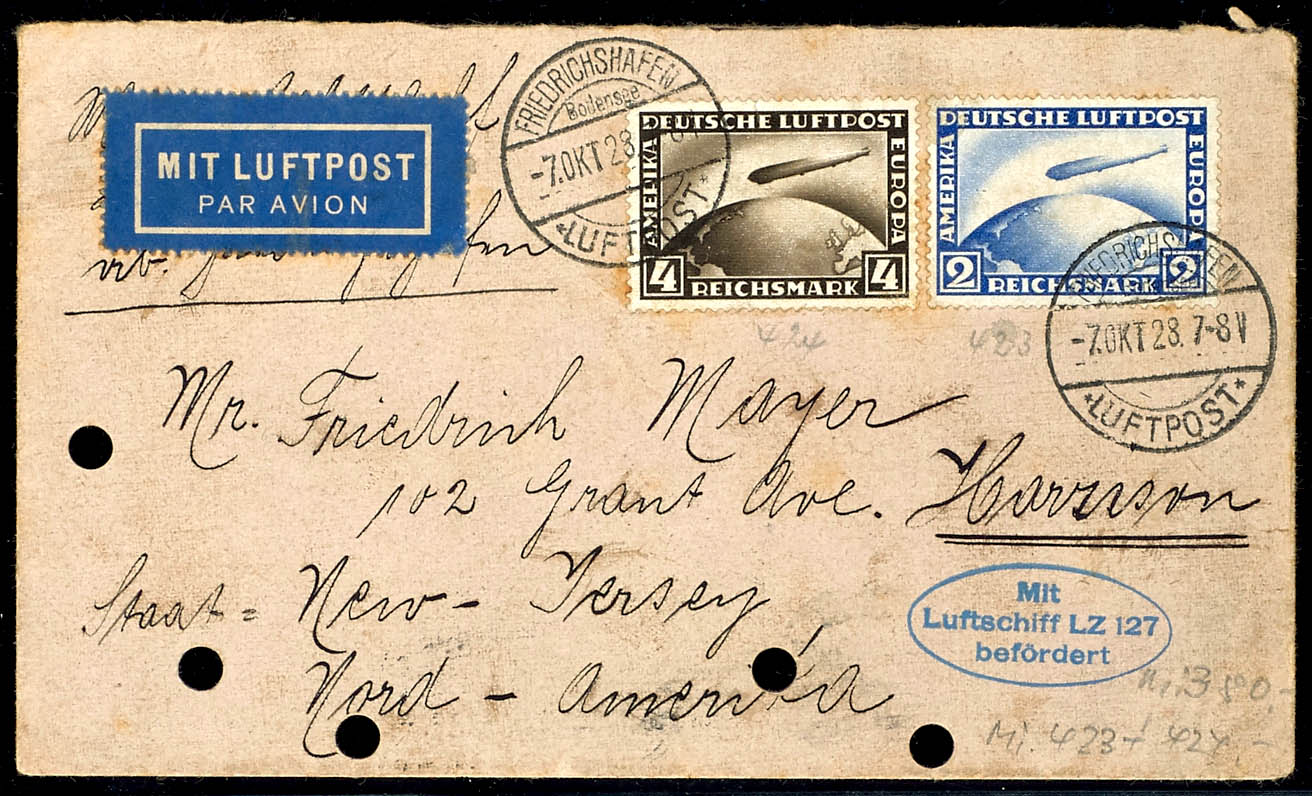 MIT LUFTPOST
PAR AVION
FRIEDRICHSHAFEN
Bodensee
-7.OKT 28.
*LUFTPOST*
DEUTSCHE LUFTPOST
AMERIKA
EUROPA
4 REICHSMARK 4
DEUTSCHE LUFTPOST
AMERIKA
EUROPA
2 REICHSMARK 2
FRIEDRICHSHAFEN
-7.OKT 28. 7-8 V
*LUFTPOST*
424
423
Mr. Friedrich Mayer
102 Grant Ave. Harrison
Staat = New-Jersey,
Nord - Amerika
Mit
Luftschiff LZ 127
befördert
Mi. 423 + 424 -